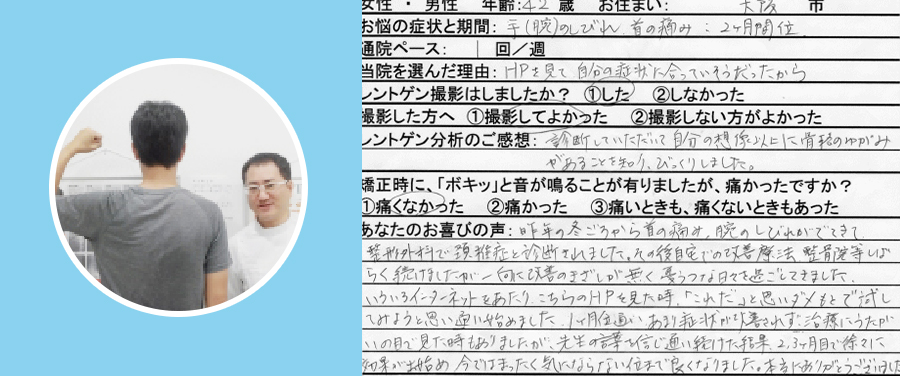 女性 ・ 男性 年齢:42 歳 お住まい: 大阪 市
お悩の症状と期間: 手(腕)のしびれ、首の痛み : 2ヶ月間位
通院ペース: 1 回/週
当院を選んだ理由: HPを見て自分の症状に合っていそうだったから
レントゲン撮影はしましたか? ①した ②しなかった
撮影した方へ ①撮影してよかった ②撮影しない方がよかった
レントゲン分析のご感想: 診断していただいて自分の想像以上に骨格のゆがみ
があることを知り、びっくりしました。
矯正時に、「ボキッ」と音が鳴ることが有りましたが、痛かったですか?
①痛くなかった ②痛かった ③痛いときも、痛くないときもあった
あなたのお喜びの声: 昨年の冬ごろから首の痛み、腕のしびれがでてきて、
整形外科で頚椎症と診断されました。その後自宅での改善療法、整骨院等しば
らく続けましたが一向に改善のきざしが無く憂うつな日々を過ごしてきました。
いろいろインターネットをあたり、こちらのHPを見た時、「これだ」と思いダメもとで試し
てみようと思い通い始めました。1ヶ月位通いあまり症状が改善されず、治療にうたが
いの目で見た時もありましたが、先生の言葉を信じ通い続けた結果、2,3ヶ月目で徐々に
効果が出始め 今ではまったく気にならない位まで良くなりました。本当にありがとうございました